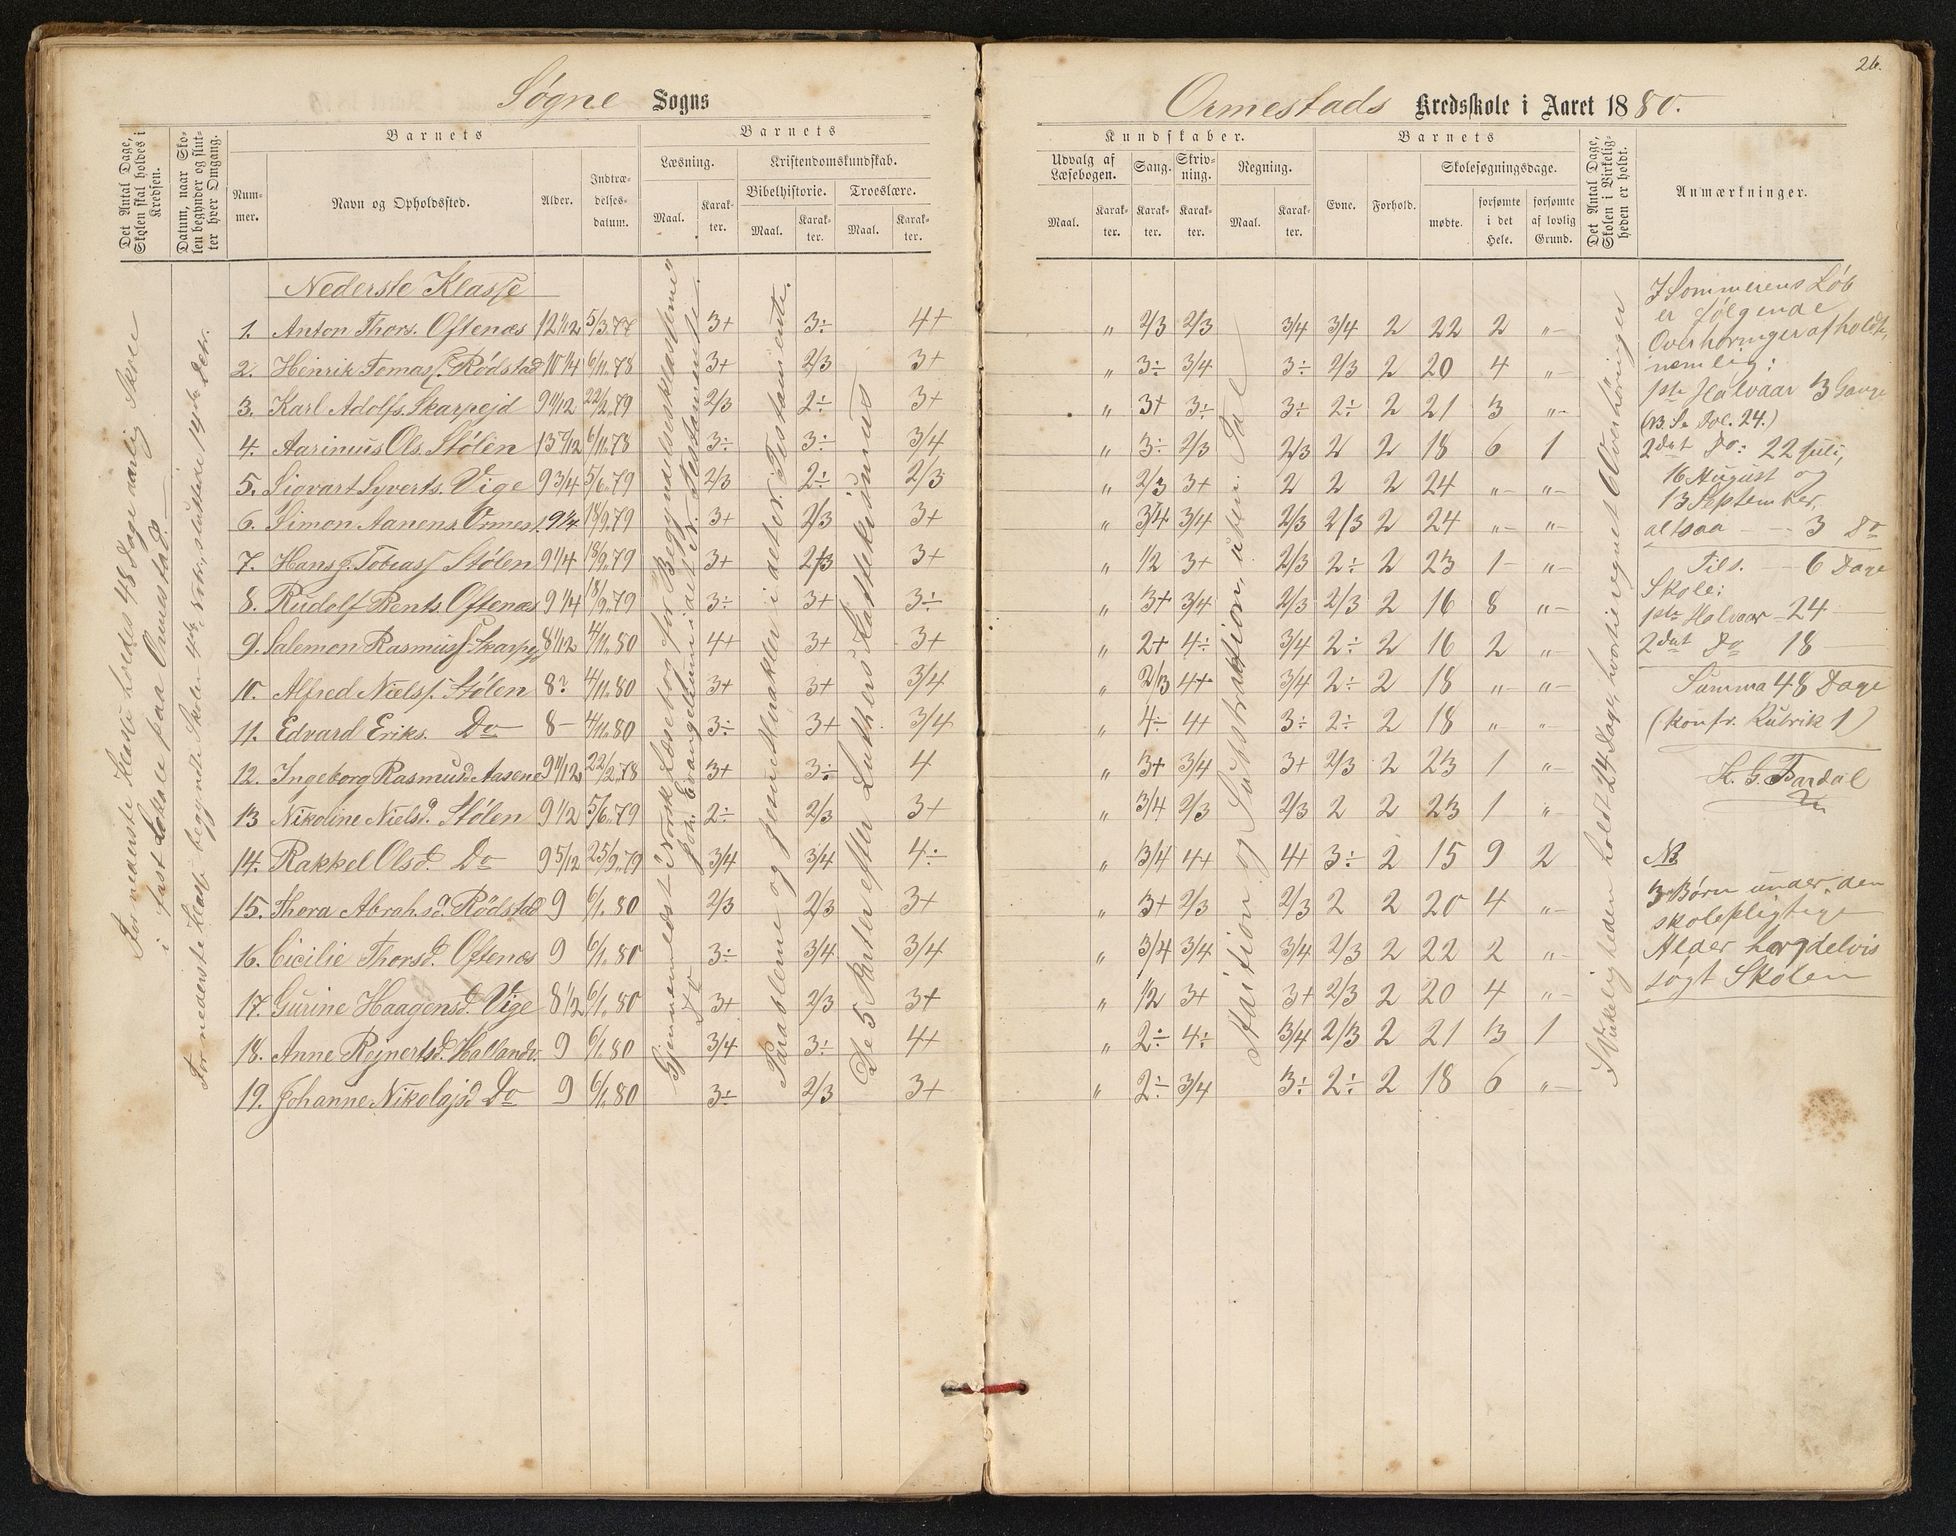 26.
Søgne Sogns
Ormestads Kredsskole i Aaret 1880.
Det Antal Dage, Skolen skal holdes i Kredsen.
Datum, naar Skolen begynder og slutter hver Omgang.
Barnets
Nummer.
Navn og Opholdssted.
Alder.
Indtrædelsesdatum.
Barnets
Læsning.
Maal.
Karakter.
Kristendomskundskab.
Bibelhistorie.
Maal.
Karakter.
Troeslære.
Maal.
Karakter.
Kundskaber.
Udvalg af Læsebogen.
Maal.
Karakter.
Sang.
Karakter.
Skrivning.
Karakter.
Regning.
Maal.
Karakter.
Barnets
Evne.
Forhold.
Skolesøgningsdage.
mødte.
forsømte i det Hele.
forsømte af lovlig Grund.
Det Antal Dage, Skolen i Virkeligheden er holdt.
Anmærkninger.
For nederste Klasse holdes 48 Dage aarlig Skole
i fast Lokale paa Ormestad.
For nederste Klasse begyndte Skolen 4de Nvbr., sluttede 14de Debr.
Gjennemlæst i Norsk Læsebog for Begyndelsesklasserne
Joh. Evangelium i det N. Testamente.
Do
Parablerne og Jesu Mirakler i det n. Testamente.
De 5 Parter efter Luthers Kattekismus
Adition og Subtraktion
I Virkeligheden holdt 24 Dage, hvortil regnet Overhøringer
Nederste Klasse
1. Anton Thors. Oftenæs 12 1/12 5/3.77 3+ 3÷ 4+ " 2/3 2/3 3/4 3/4 2 22 2 "
2. Henrik Tomass. Rödstad 10 1/4 6/11.78 3+ 2/3 3+ " 3÷ 3/4 3÷ 2/3 2 20 4 "
3. Karl Adolfs. Skarpejd 9 11/12 22/2.79 2/3 2÷ 3+ " 3+ 3÷ 3÷ 2÷ 2 21 3 "
4. Aarinius Ols. Stølen 13 7/12 6/11.78 3÷ 3÷ 3/4 " 3÷ 2/3 2/3 2 2 18 6 1
5. Sigvart Syverts. Vige 9 3/4 5/6.79 2/3 2÷ 2/3 " 2/3 3+ 2 2 2 24 " "
6. Simon Aanens. Ormes. 9 1/4 18/9.79 3+ 2/3 3+ " 3/4 3/4 2/3 2/3 2 24 " "
7. Hans J. Tobiass. Stølen 9 1/4 18/9.79 3+ 2/3 3+ " 1/2 3+ 2/3 2÷ 2 23 1 "
8. Rudolf Bents. Oftenæs 9 1/4 18/9.79 3÷ 3+ 3÷ " 3+ 3/4 2/3 2/3 2 16 8 "
9. Salemon Rasmuss. Skarpejd 8 1/12 4/11.80 4+ 3+ 3+ " 2+ 4÷ 3/4 2÷ 2 16 2 "
10. Alfred Nielss. Stølen 8? 4/11.80 3+ 3+ 3/4 " 2/3 4+ 3/4 2÷ 2 18 " "
11. Edvard Eriks. Do 8 4/11.80 3÷ 3+ 3/4 " 4÷ 4+ 3÷ 2÷ 2 18 " "
12. Ingeborg Rasmusd. Aasene 9 11/12 22/2.78 3+ 3÷ 4 " 3+ 3/4 3+ 2/3 2 23 1 "
13 Nikoline Nielsd. Stølen 9 1/2 5/6.79 2÷ 2/3 3+ " 3/4 2/3 2/3 2 2 23 1 "
14. Rakkel Olsd. Do 9 5/12 25/9.79 3/4 3/4 4÷ " 3/4 4+ 4+ 3÷ 2 15 9 2
15. Thora Abrahsd. Rödstad 9 6/1.80 2/3 2/3 3+ " 3+ 2/3 2/3 2 2 20 4 "
16. Cicilie Thorsd. Oftenæs 9 6/1.80 3÷ 3/4 3/4 " 3/4 3/4 3/4 2/3 2 22 2 "
17. Gurine Haagensd. Vige 8 1/2 6/1.80 3+ 2/3 3+ " 1/2 3+ 3+ 2/3 2 20 4 "
18. Anne Rejnertsd. Hallandv. 9 6/1.80 3/4 3÷ 4+ " 2÷ 4÷ 3/4 2/3 2 21 3 1
19. Johanne Nikolajsd. Do 9 6/1.80 3÷ 2/3 3+ " 2÷ 3/4 3÷ 2÷ 2 18 6 "
I Sommerens Løb
er følgende
Overhøringer afholdt,
nemlig:
1ste Halvaar 3 Gange
(NB. Se Fol. 24.)
2det Do: 22 Juli,
16 August og
13 September,
altsaa 3 Do
Tils. 6 Dage
Skole:
1ste Halvaar 24
2det Do 18
Summa 48 Dage
(konfr. Rubrik 1)
K. G. Tardal
NB
3 Børn under den
skolepligtige
Alder har delvis
søgt Skolen